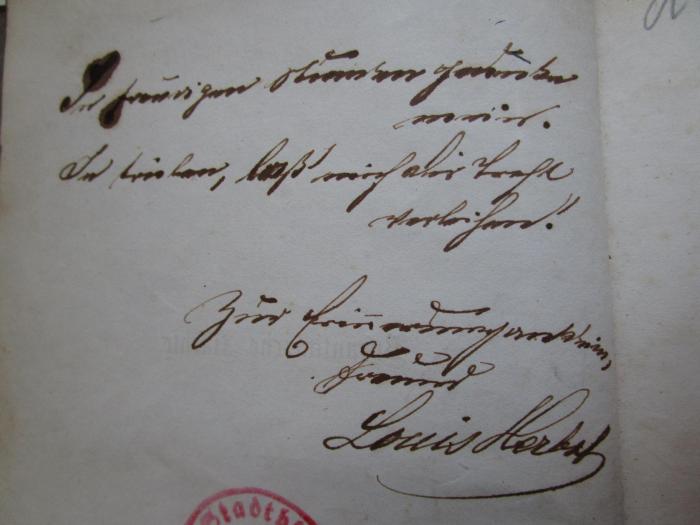 In freudigen Stunden gedenke
mein.
In trüben, laß mich dir Trost
verleihen!
Zur Erinnerung an dein,
Freund
Louis Herbst
Stadtbi